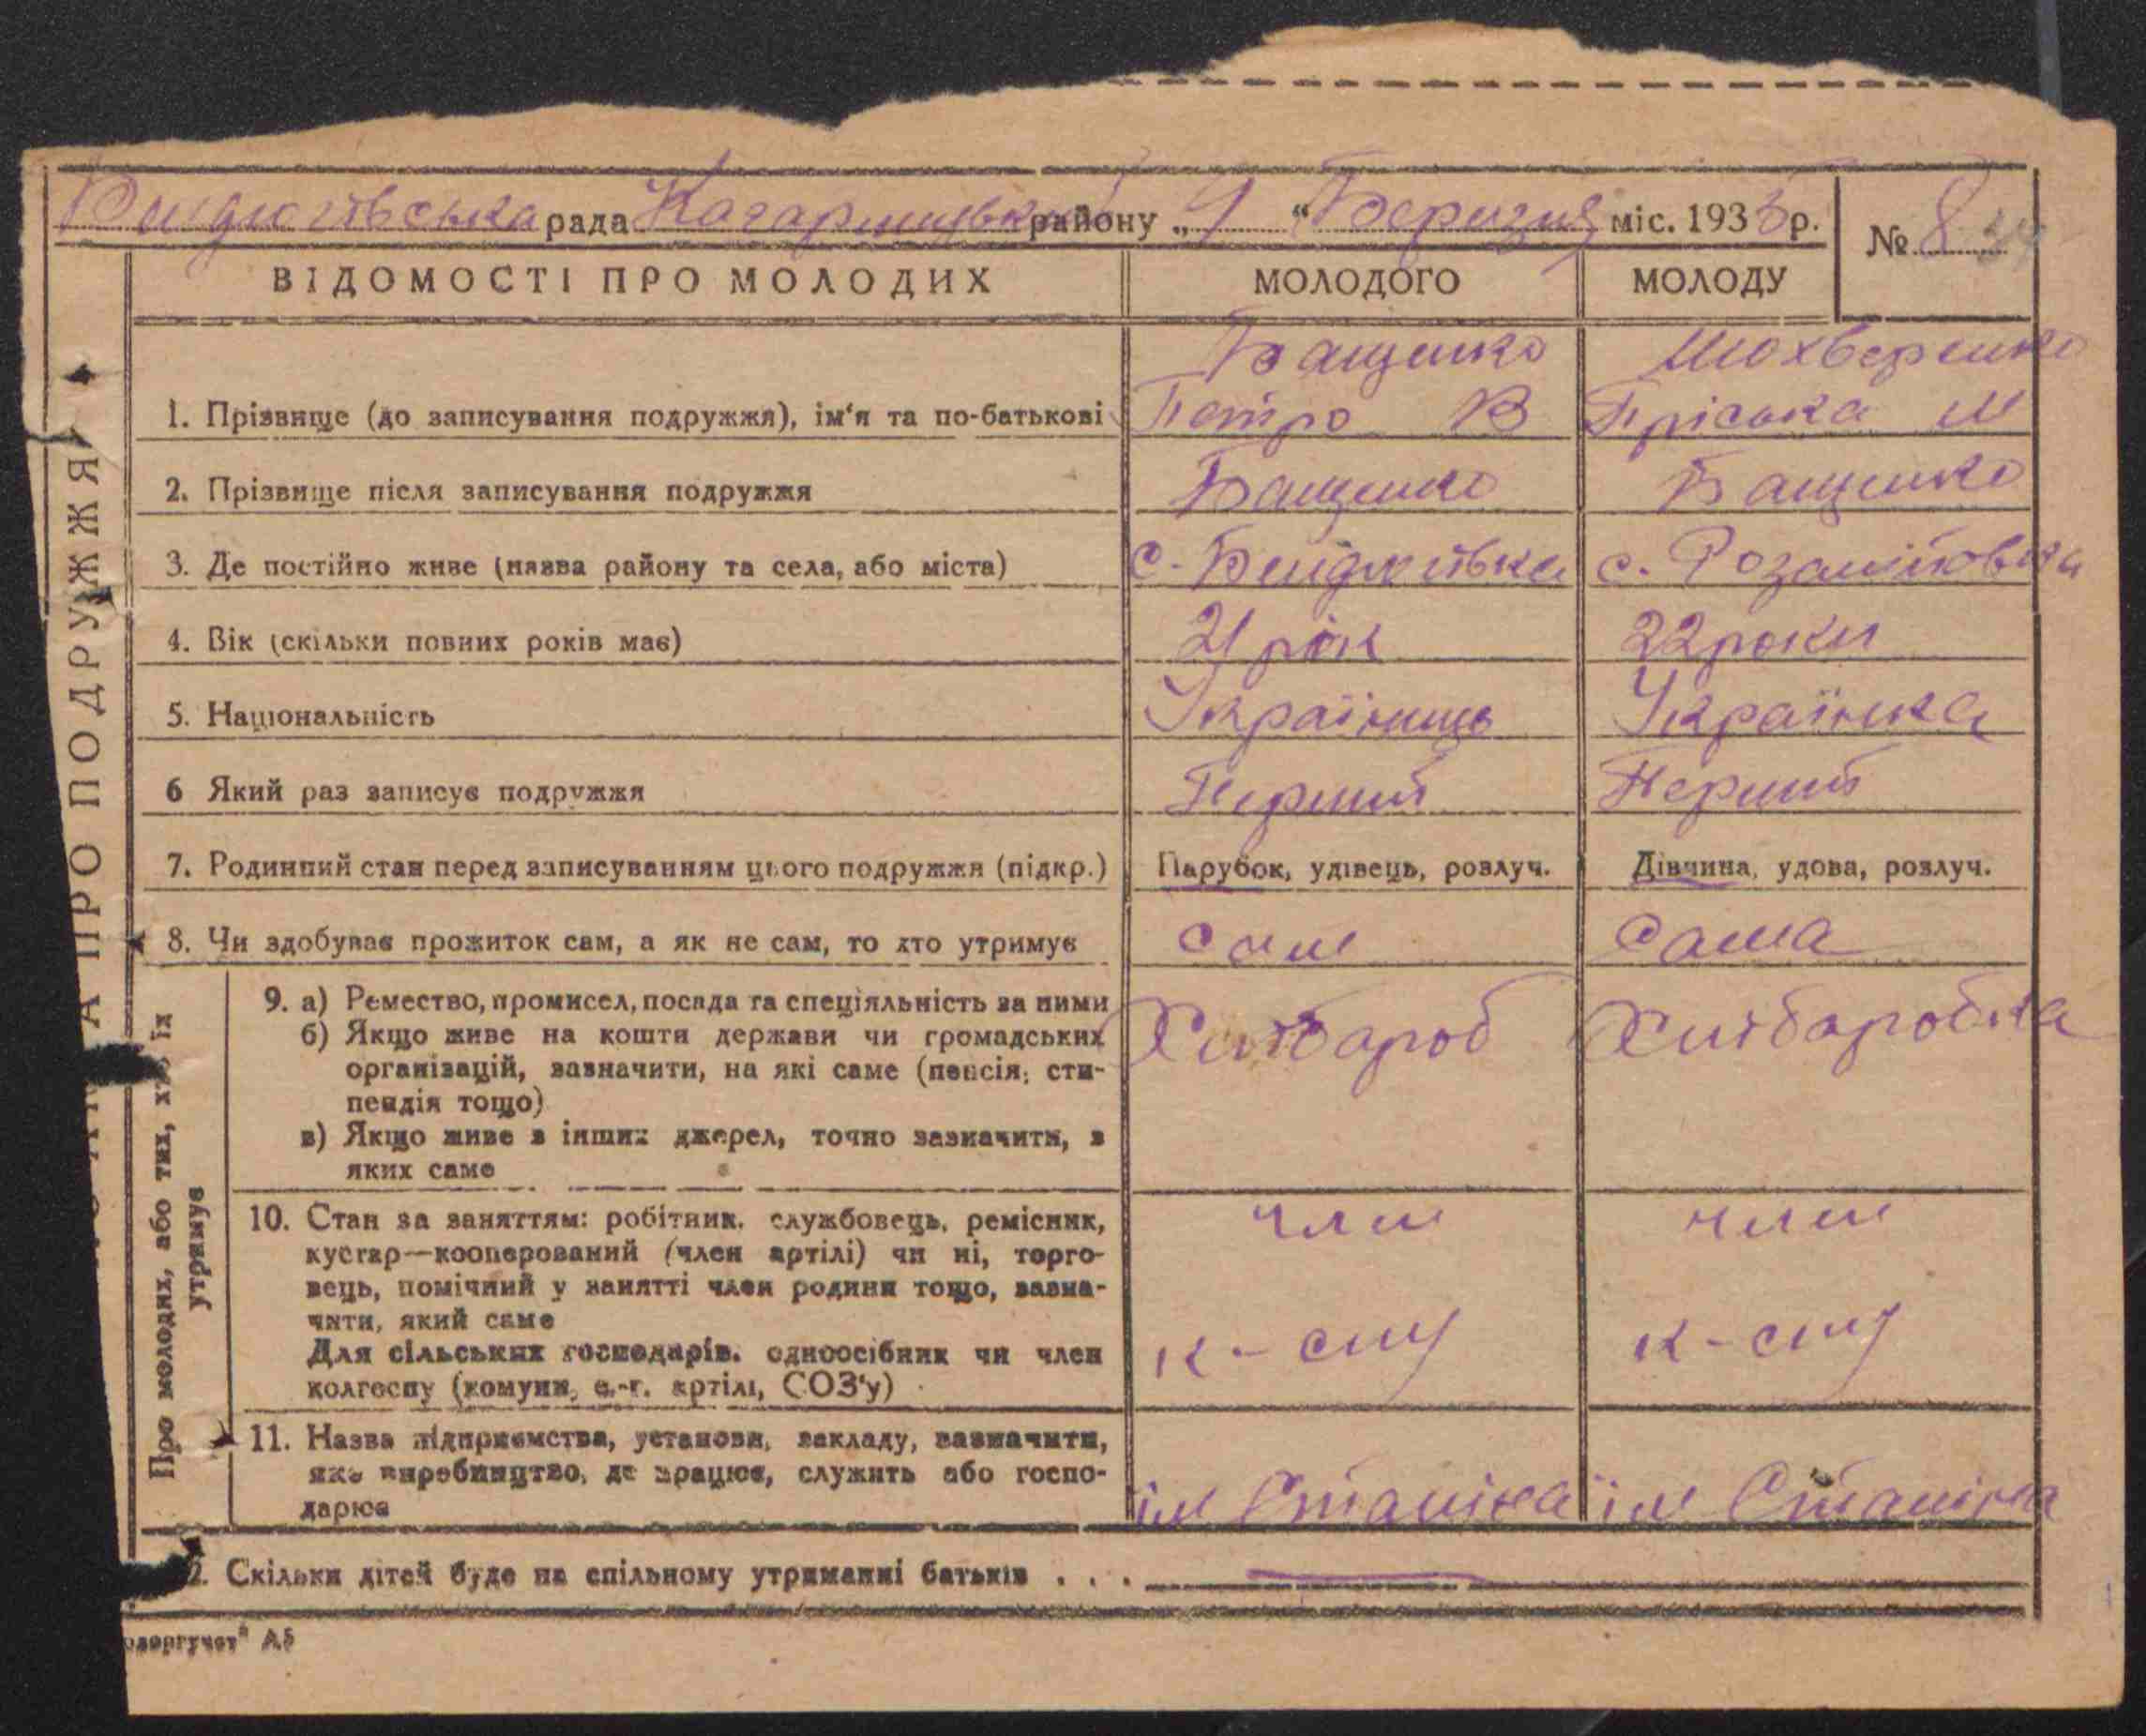 Бендюгівська рада Кагарлицьк району „ 9 “ Березня міс. 1933 р. № 8
ВІДОМОСТІ ПРО МОЛОДИХ МОЛОДОГО МОЛОДУ
Бащенко
1. Прізвище (до записування подружжя), ім'я та по-батькові Петро В Пріська М
2. Прізвище після записування подружжя Бащенко Бащенко
3. Де постійно живе (назва району та села, або міста) с. Бендюгівка с.
4. Вік (скільки повних років має) 21 рік 22 роки
5. Національність Українець Українка
6 Який раз записує подружжя Перший Перший
7. Родинний стан перед записуванням цього подружжя (підкр.) Парубок, удівець, розлуч. Дівчина, удова, розлуч.
8. Чи здобуває прожиток сам, а як не сам, то хто утримує сам сама
9. а) Ремество, промисел, посада та спеціяльність за ними Хлібароб Хлібаробка
б) Якщо живе на кошти держави чи громадських
організацій, зазначити, на які саме (пенсія, сти-
пендія тощо)
в) Якщо живе з інших джерел, точно зазначити, з
яких саме
10. Стан за заняттям: робітник, службовець, ремісник, член член
кустар—кооперований (член артілі) чи ні, торго-
вець, помічний у занятті член родини тощо, зазна-
чити, який саме
Для сільських господарів. одноосібник чи член к-спу к-спу
колгоспу (комуни, с.-г. артілі, СОЗ'у)
11. Назва підприємства, установи, закладу, зазначити,
яке виробництво, де працює, служить або госпо-
дарює ім Сталіна ім Сталіна
2. Скільки дітей буде на спільному утриманні батьків . . .
Про молодих, або тих, хто їх
утримує
А ПРО ПОДРУЖЖЯ